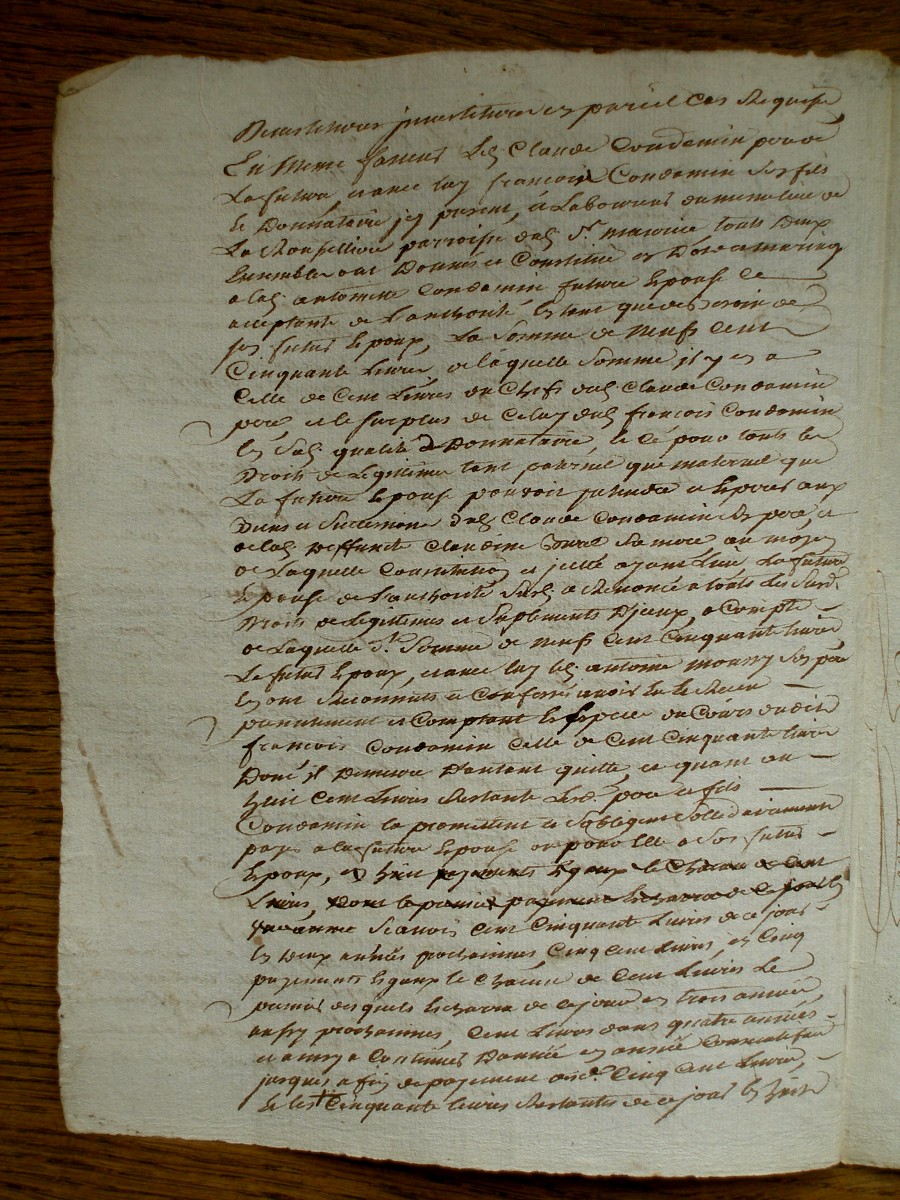 En meme faveur led. Claude Condemin pere de
La future, et avec luy françois Condamin son fils
le Donnataire, present, et Laboureur du meme lieu de
La parroisse dud. St. maurice touts Deux
Ensemble ont Donnés et Constitué en Dote et mariage
a lad. antoinette Condamin future Epouse et
aceptante de L'authorité que des
son futur Epoux, La Somme de neufs cent
Cinquante Livres, de laquelle Somme, il y en a
Celle de Cent Livres du Cheft dud. Claude Condamin
pere, et le surplus de Celuy dud. françois Condamin
en sad. qualité de Donnataire, et ce pour touts les
Droits de Legitime tant paternel que maternel que
La future Epouse pouvoit pretendre et Esperer aux
Biens et Successions dud. Claude Condamin son pere, et
de lad. Deffunte Claudine sa mere au moyen
de Laquelle Constitution et icelle ayant Lieu, La future
Epouse de L'authorité Susd. a Renoncé a touts Les Susd.
Droits de Legitimes et Suplements D'iceux, a Compte
de Laquelle de. Somme de neufs Cent Cinquante livres
Le futur Epoux, et avec luy led. antoine son pere
ont Reconnus et Confessé avoir Eu et Receu
presentement et Comptant En Espece du Cours dudit
françois Condamin Celle de Cent Cinquante livres
Dont il Demeure D'autant quitte, et quant au
huit Cent Livres Restante Lesd. pere et fils
Condamin La promettent et S'obligent Sollidairement
payer a la future Epouse ou pour Elle a Son futur
Epoux, en huit payements Egaux de Chacun de Cent
Livres, Dont le premier payement Echerra de ce jour en
Scavoir Cent Cinquante Livres de ce jour
En Deux années prochainnes, Cinq Cent Livres, en Cinq
payements Egaux de Chacun de Cent Livres Le
premier desquels Echerra de ce jour en trois années
aussy prochainnes, Cent Livres dans quatre années
et ainsy a Continuer D'année en année
jusques a fin de payement desd. Cinq Cent Livres,
Et les Cinquante livres Restantes de ce jour En huit